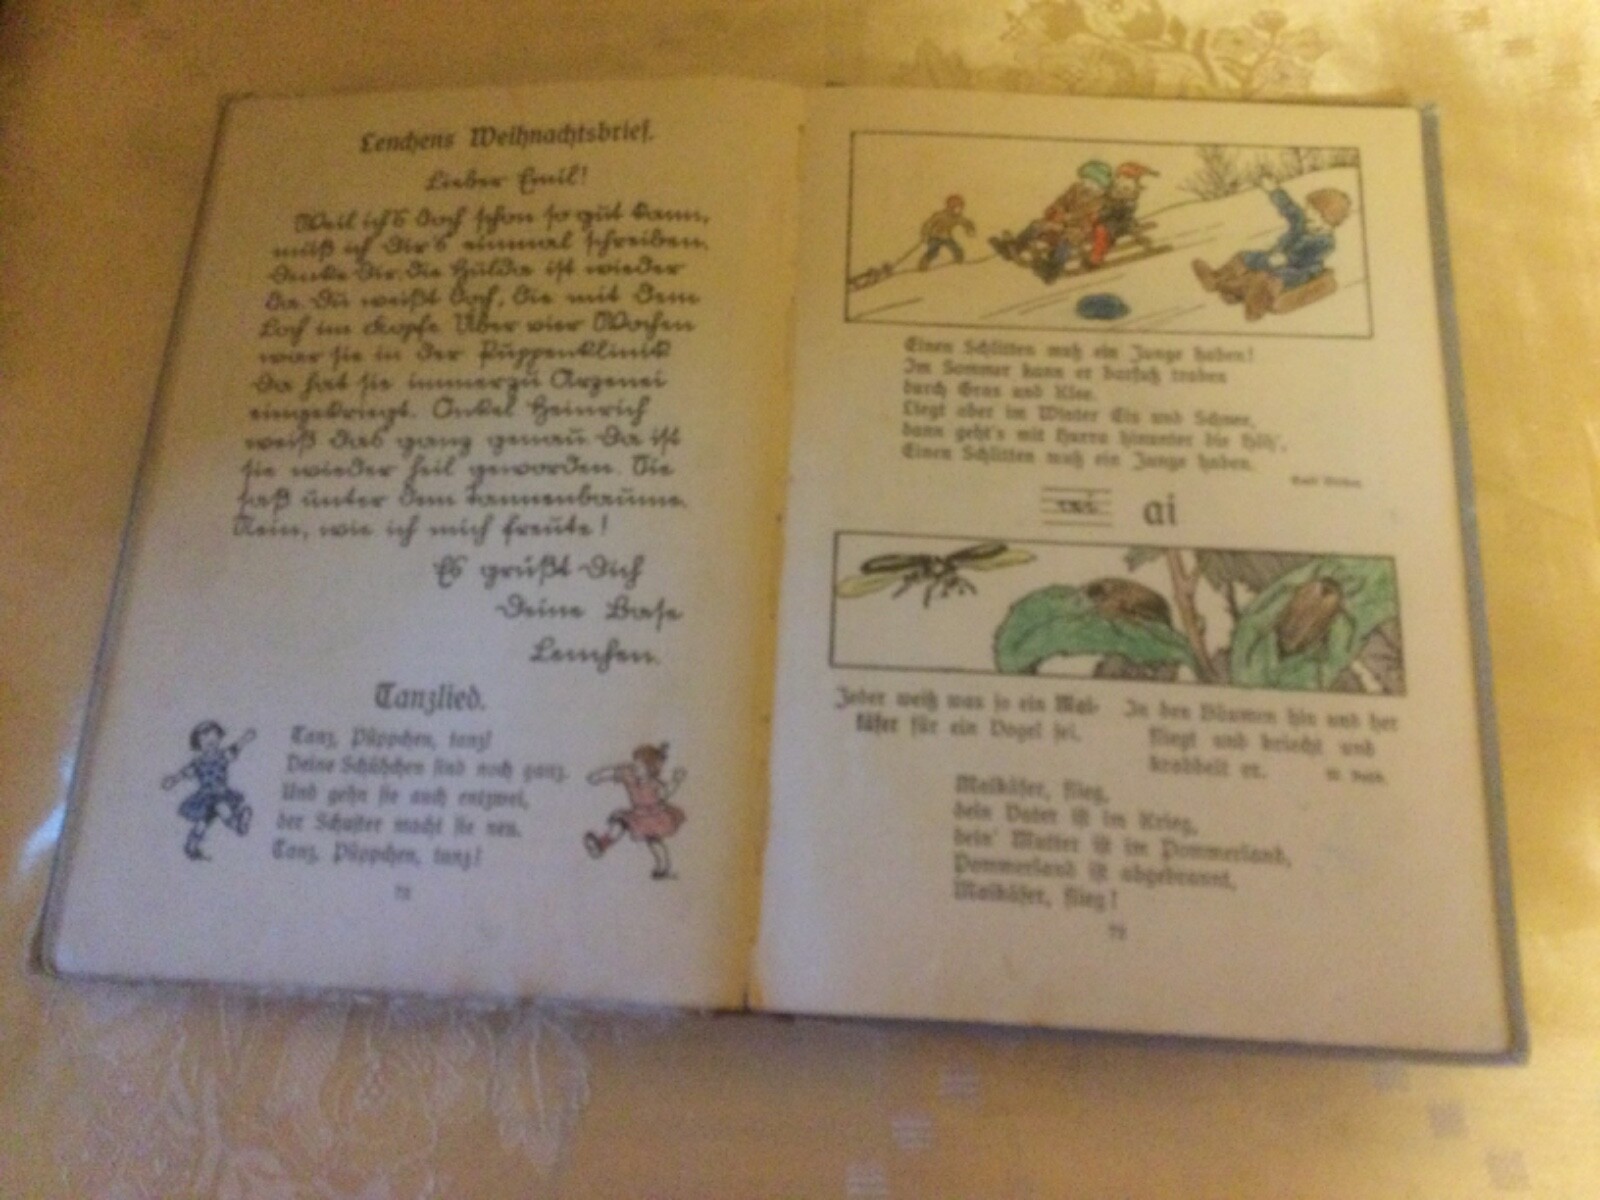 Lenchens Weihnachtsbrief.
Lieber Emil!
Weil ich's doch schon so gut kann,
muß ich Dir's einmal schreiben.
Denke Dir, die Hulda ist wieder
da. Du weißt doch, die mit dem
Loch im Kopfe. Über vier Wochen
war sie in der Puppenklinik
Da hat sie immerzu Arzenei
eingekriegt. Onkel Heinrich
weiß das ganz genau. Da ist
sie wieder heil geworden. Sie
saß unter dem Tannenbaume.
Nein, wie ich mich freute!
Es grüßt Dich
Deine Base
Lenchen.
Tanzlied.
Tanz, Püppchen, tanz!
Deine Schühchen sind noch ganz.
Und gehn sie auch entzwei,
der Schuster macht sie neu.
Tanz, Püppchen, tanz!
72
Einen Schlitten muß ein Junge haben!
Im Sommer kann er barfuß traben
durch Gras und Klee.
Liegt aber im Winter Eis und Schnee,
dann geht's mit Hurra hinunter die Höh',
Einen Schlitten muß ein Junge haben.
ai ai
Jeder weiß was so ein Mai-
käfer für ein Vogel sei.
In den Bäumen hin und her
fliegt und kriecht und
krabbelt er.
Maikäfer, flieg,
dein Vater ist im Krieg,
dein' Mutter ist im Pommerland,
Pommerland ist abgebrannt,
Maikäfer, flieg!
73